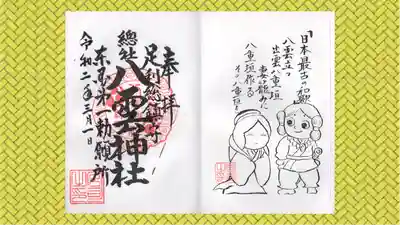 「日本最古の和歌」
八雲立つ
出雲八重垣
妻籠みに
八重垣作る
その八重垣を
奉拝
足利総鎮守
總社 八雲神社
東国第一勅願所
令和二年三月一日